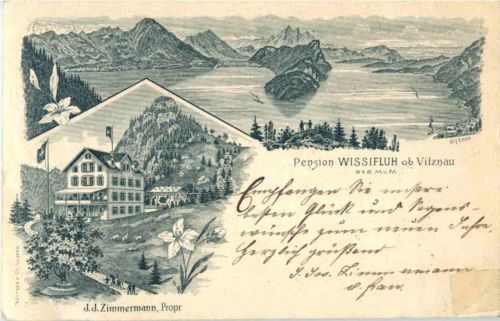 VITZNAU
Pension WISSIFLUH ob Vitznau
948 M.ü.M.
Empfangen Sie unsere
besten Glück und Segens-
wünsche zum neuen Jahre,
Herzlich grüßend
J. Jos. Zimmermann
& Frau.
J.J. Zimmermann, Propr